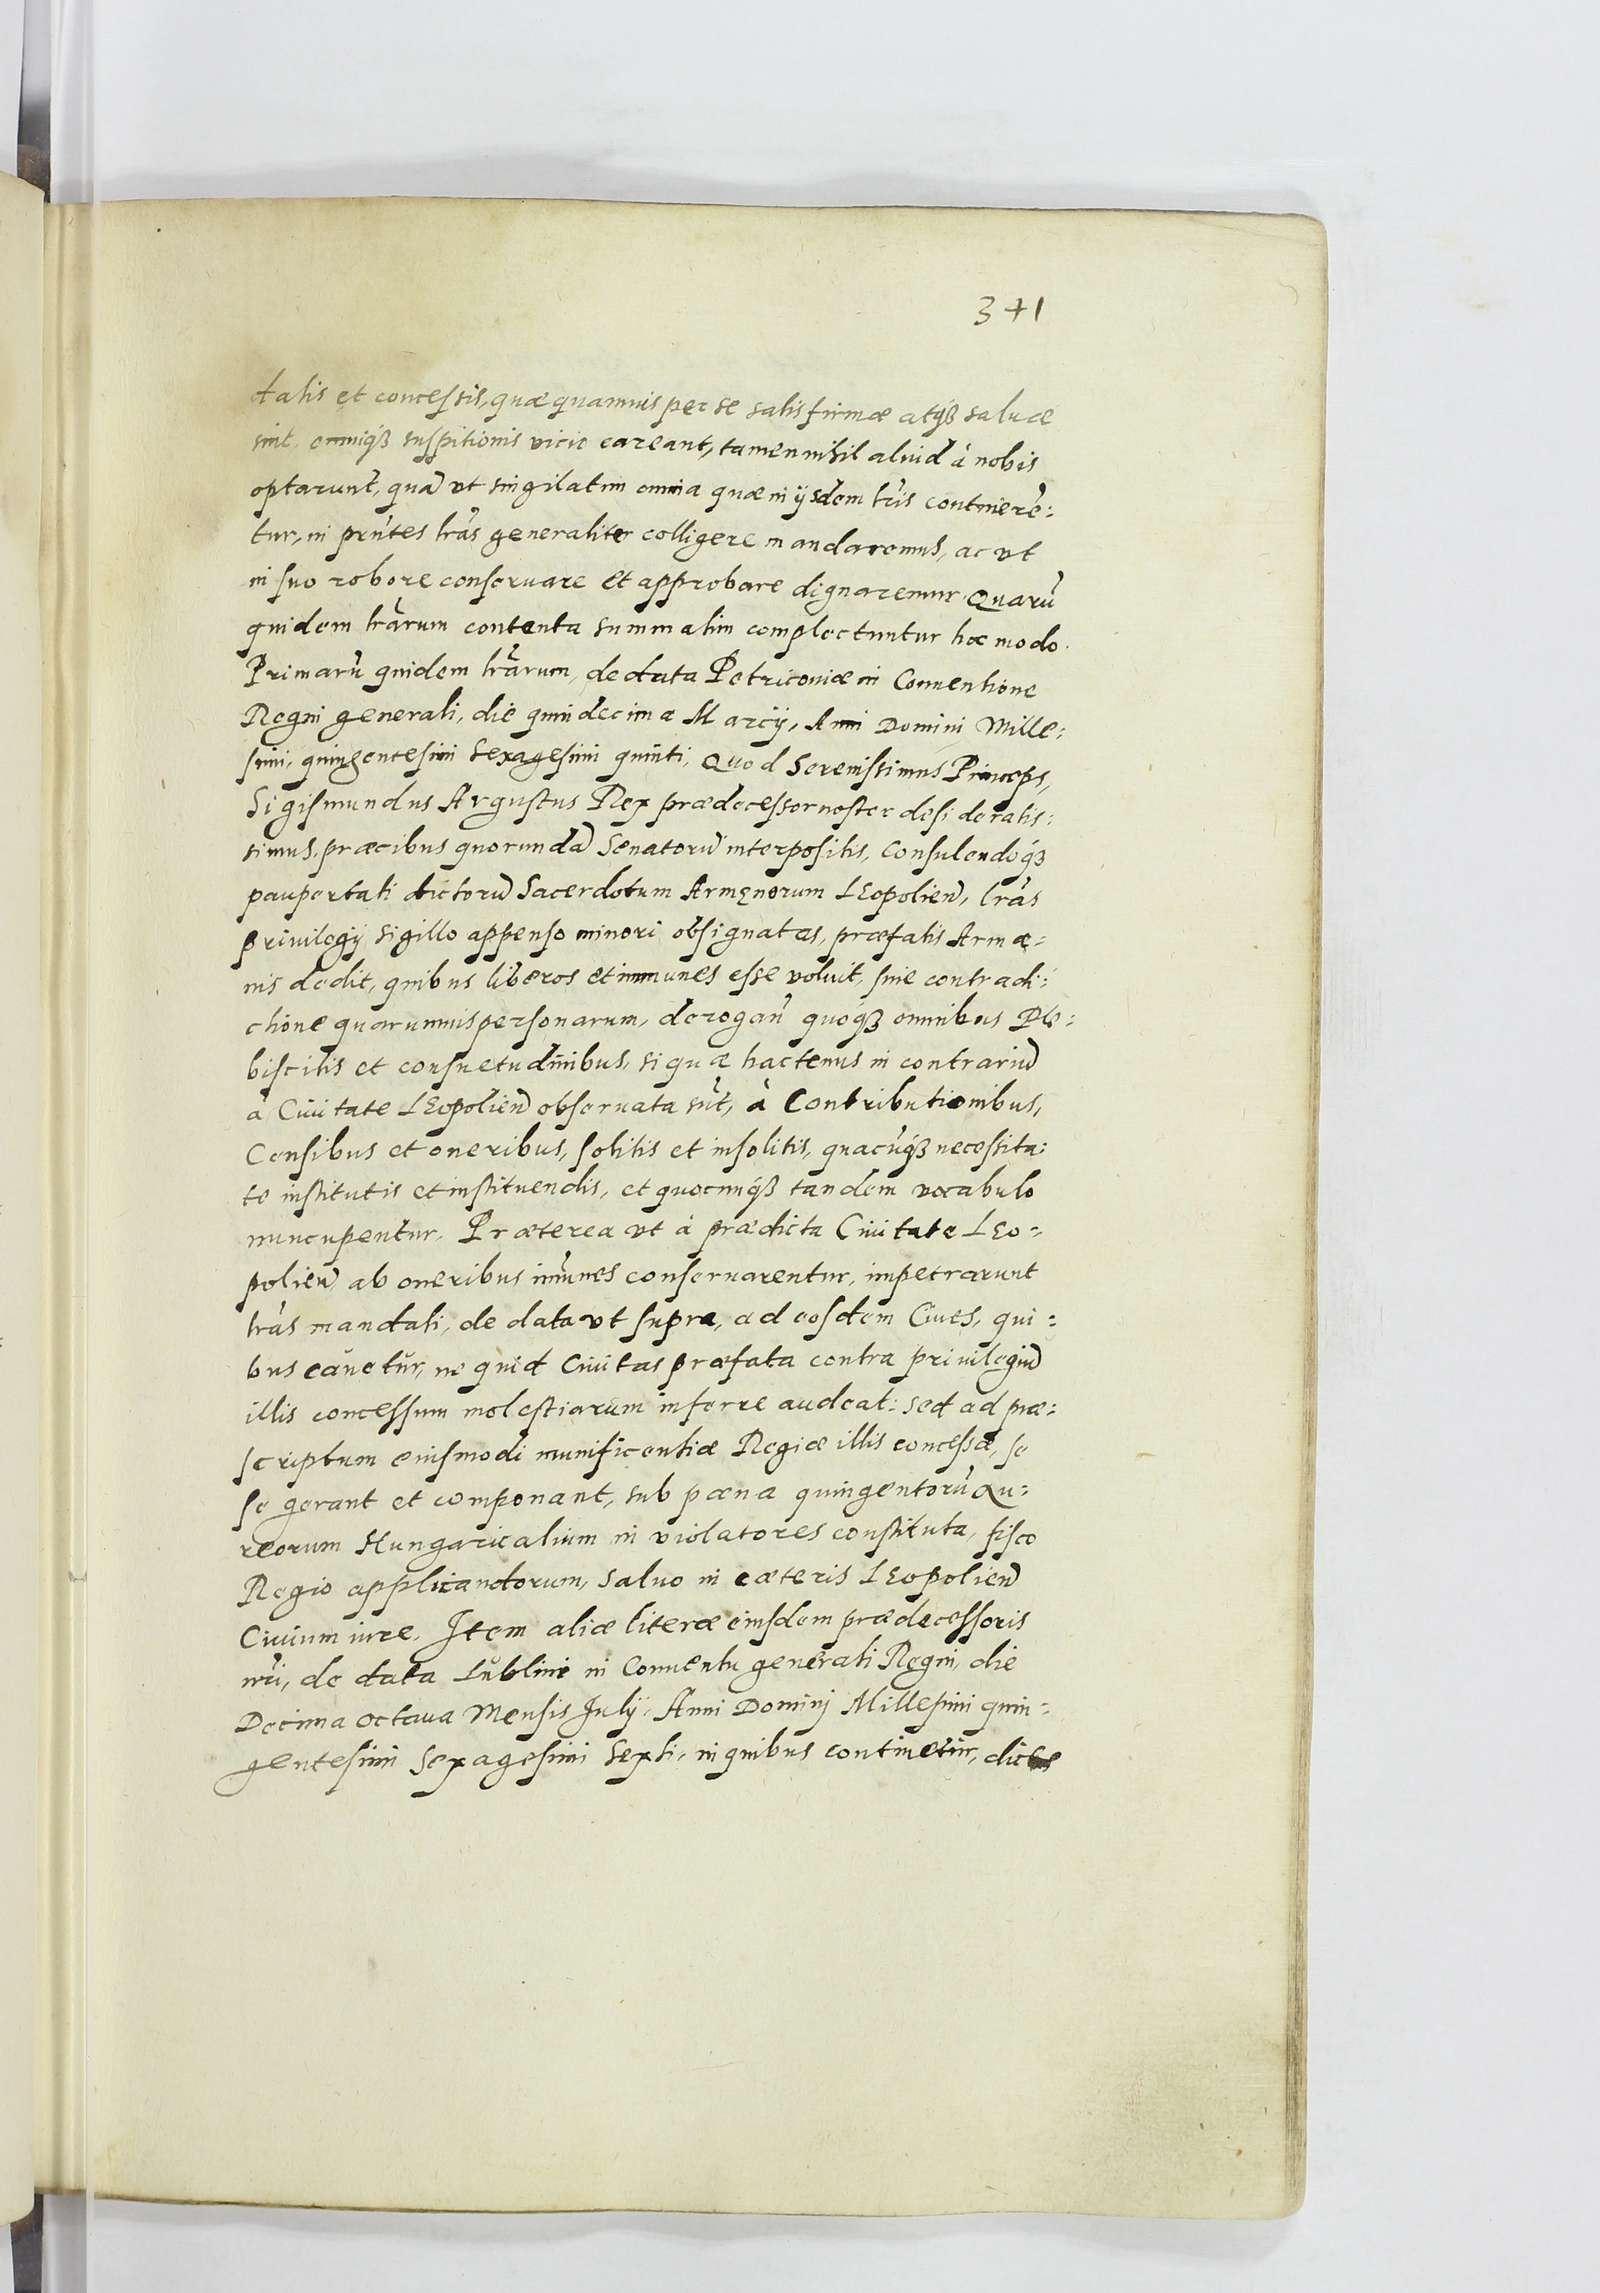 371
datis et concessis, quæ quamuis per se satis firmæ atq́ꝫ saluæ
sint, omniq́ꝫ suspitionis vicio careant, tamen nihil aliud à nobis
optarunt, quã vt singilatim omnia quæ in ijsdem lr̃is continerẽ:
tur, in prñtes lr̃as generaliter colligere mandaremus, ac vt
in suo robore conseruare et approbare dignaremur. Quarũ
quidem lr̃arum contenta summatim complectuntur hoc modo.
Primarũ quidem lr̃arum, de data Petricouiæ in Conuentione
Regni generali, die quindecima Marcij, Anni Domini Mille:
simi, quingentesimi sexagesimi quinti, Quod Serenissimus Princeps,
Sigismundus Augustus Rex prædecessor noster desideratis:
simus, præcibus quorundã Senatorũ interpositis, consulendoq́ꝫ
paupertati dictorũ Sacerdotum Armęnorum LEopolieñ, lr̃as
priuilegij sigillo appenso minori obsignatas, præfatis Armæ:
nis dedit, quibus liberos et immunes esse voluit, sine contradi:
ctione quarumuis personarum, derogañ quoq́ꝫ omnibus Ple:
biscitis et consuetudinibus, si quæ hactenus in contrariũ
à Ciuitate LEopolieñ obseruata sũt, à Contributionibus,
Censibus et oneribus, solitis et insolitis, quacũq́ꝫ necessita:
te institutis et instituendis, et quocunq́ꝫ tandem vocabulo
nuncupentur. Præterea vt à prædicta Ciuitate LEo:
polieñ ab oneribus im̃unes conseruarentur, impetrarunt
lr̃as mandati, de data vt supra, ad eosdem Ciues, qui:
bus cauetur, ne quid Ciuitas præfata contra priuilegiũ
illis concessum molestiarum inferre audeat: sed ad præ:
scriptum eiusmodi munificentiæ Regiæ illis concessæ, se
se gerant et componant, sub pæna quingentorũ Au:
reorum Hungaricalium in violatores constituta, fisco
Regio applicandorum, saluo in cæteris LEopolieñ
Ciuium iure. Item aliæ literæ eiusdem prædecessoris
nr̃i, de data Lublini in Conuentu generali Regni, die
Decima octaua Mensis Julij. Anni Domini Millesimi quin:
gentesimi sexagesimi sexti, in quibus continetur,